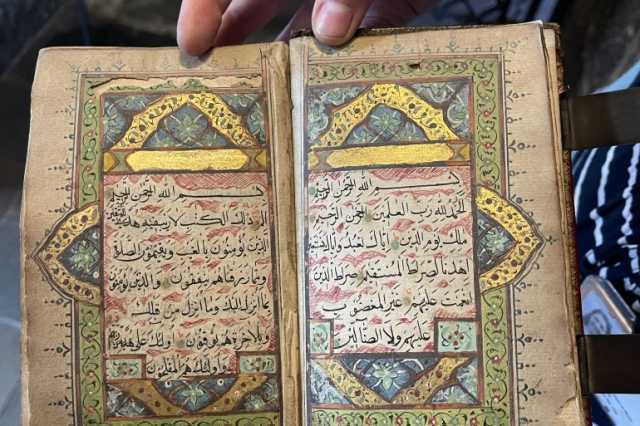 بسم الله الرحمن الرحيم
الحمد لله رب العلمين الرحمن الرحيم
ملك يوم الدين اياك نعبد واياك نستعين
اهدنا الصراط المستقيم صراط الذين
انعمت عليهم غير المغضوب
عليهم ولا الضالين
بسم الله الرحمن الرحيم
الم ذلك الكتب لا ريب فيه هدى للمتقين
الذين يؤمنون بالغيب ويقيمون الصلاة
ومما رزقناهم ينفقون والذين يؤمنون
بما انزل اليك وما انزل من قبلك
وبالاخرة هم يوقنون اولئك على هدى من ربهم
واولئك هم المفلحون